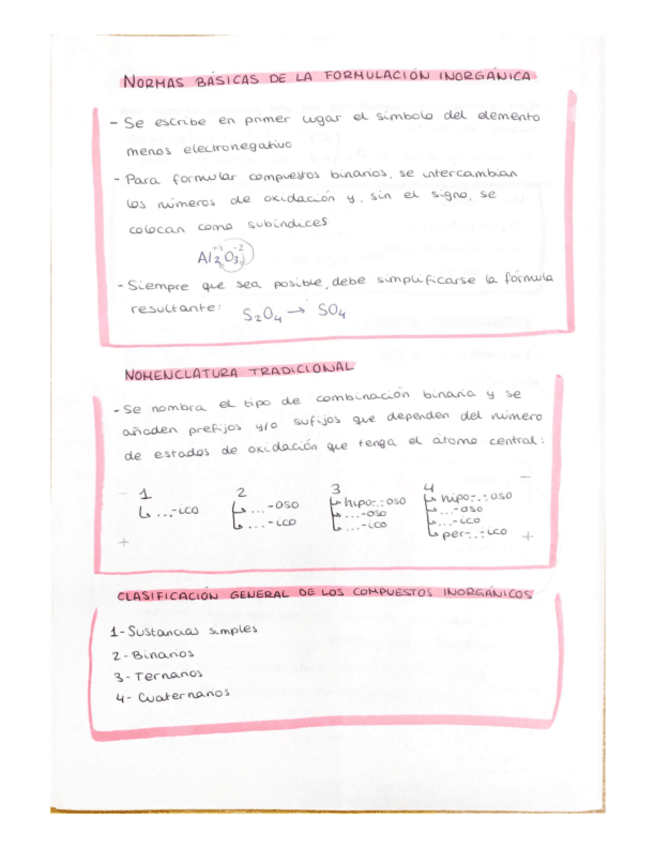 NORMAS BÁSICAS DE LA FORMULACIÓN INORGÁNICA
- Se escribe en primer lugar el símbolo del elemento
menos electronegativo
- Para formular compuestos binarios, se intercambian
los números de oxidación y, sin el signo, se
colocan como subíndices
+3 -2
Al2O3
- Siempre que sea posible, debe simplificarse la fórmula
resultante: S2O4 → SO4
NOMENCLATURA TRADICIONAL
- Se nombra el tipo de combinación binaria y se
añaden prefijos y/o sufijos que dependen del número
de estados de oxidación que tenga el átomo central:
1 2 3 4 -
↳ ...-ico ↳ ...-oso ↳ hipo-...-oso ↳ hipo-...-oso
↳ ...-ico ↳ ...-oso ↳ ...-oso
↳ ...-ico ↳ ...-ico
+ ↳ per-...-ico +
CLASIFICACIÓN GENERAL DE LOS COMPUESTOS INORGÁNICOS
1- Sustancias simples
2- Binarios
3- Ternarios
4- Cuaternarios